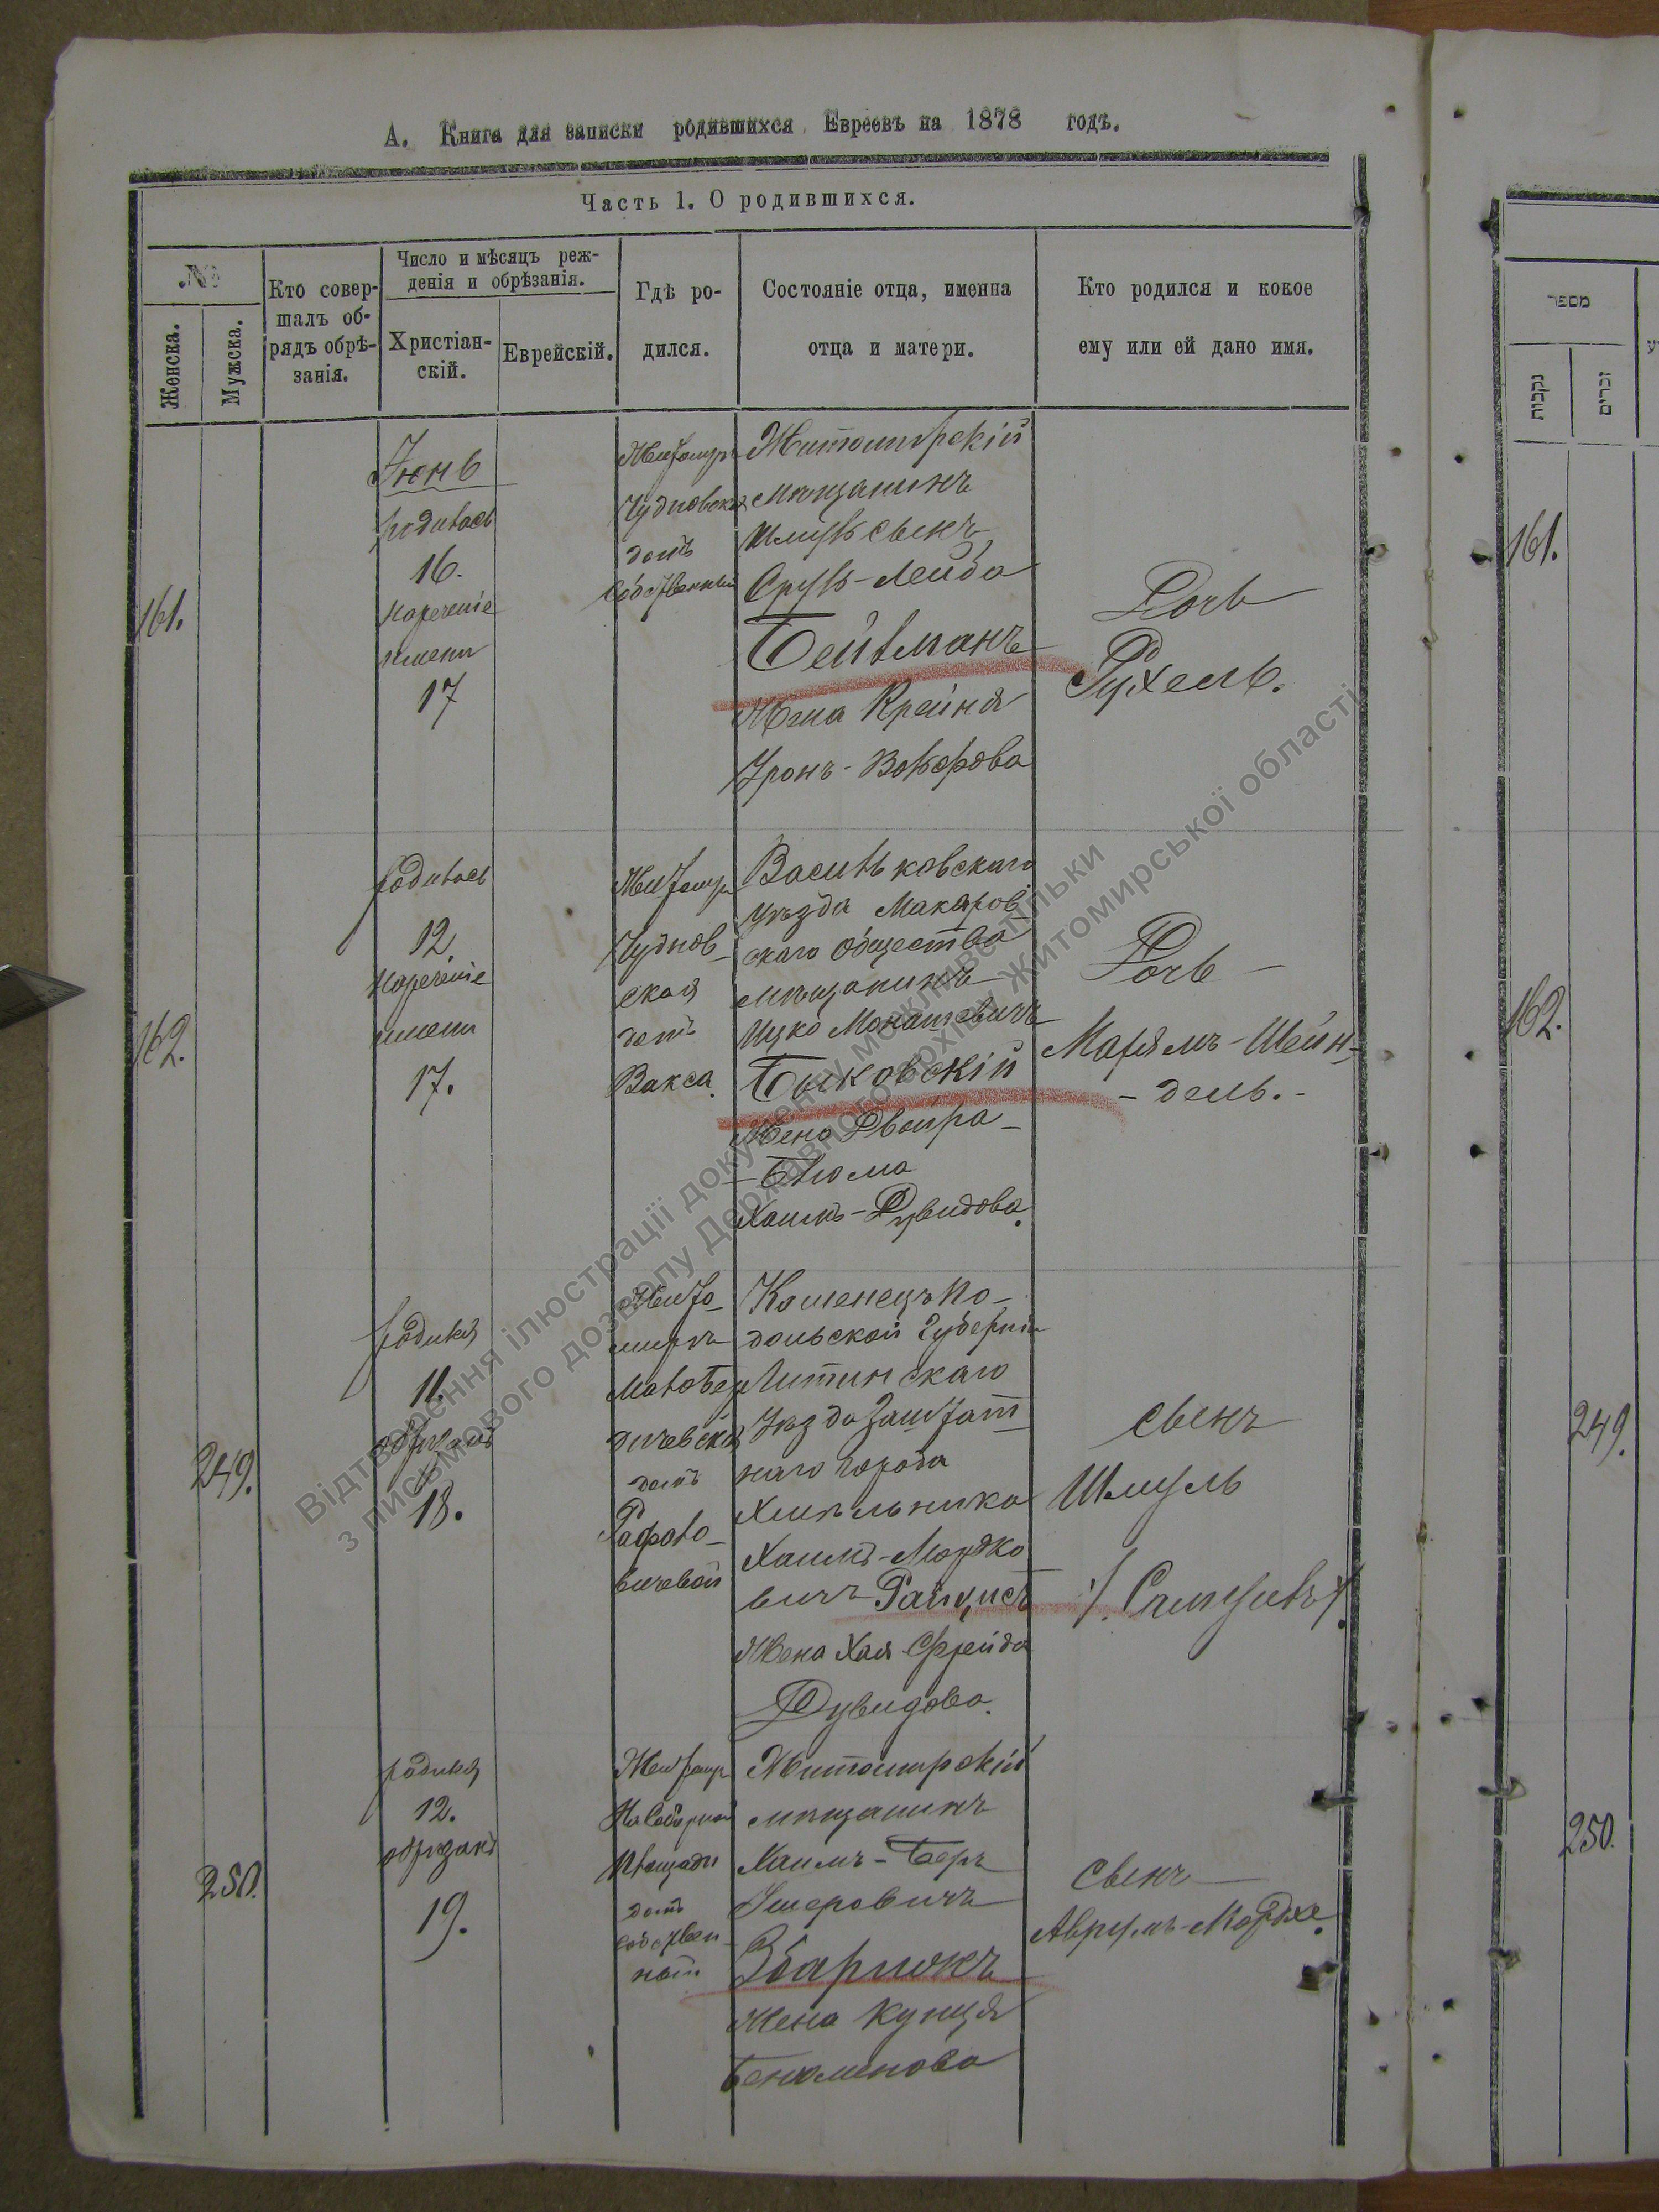 А. Книга для записки родившихся Евреевъ на 1878 годъ.
Часть 1. О родившихся.
№
Женска.
Мужска.
Кто совер-
шалъ об-
рядъ обрѣ-
занія.
Число и мѣсяцъ реж-
денія и обрѣзанія.
Христіан-
скій.
Еврейскій.
Гдѣ ро-
дился.
Состояніе отца, именна
отца и матери.
Кто родился и кокое
ему или ей дано имя.
161.
Іюнь
родилась
16.
Нареченіе
имени
17
Житомиръ
Чудновская
домъ
Собственный
Житомирскій
мѣщанинъ
Шмуль сынъ
Сруль-Лейба
Бейлманъ
Жена Крейня
Дочь
Рухель.
162.
родилась
12.
Нареченіе
имени
17.
Житомиръ
Чуднов-
ская
домъ
Вакса.
Васильковскаго
уѣзда Макаров
скаго общества
мѣщанинъ
Ицко Монашевичъ
Быковскій
Жена Двойра-
-Блюма
Хаимъ-Дувидова.
Дочь-
Марямъ-Шейн-
-дель.-
249.
родился
11.
обрѣзанъ
18.
Жито-
миръ
Малобер
дичевская
домъ
Рафало-
вичевой
Каменецъ По-
дольской Губерніи
Литинскаго
Уѣзда Заштат-
наго города
Хмѣльника
Хаимъ-Мордко
вичъ Райцисъ
Жена Хая Фрейда
Дувидова.
сынъ
Шмуль
250.
родился
12.
обрѣзанъ
19.
Житомиръ
На Соборной
площади
домъ
собствен-
ной
Житомирскій
мѣщанинъ
Хаимъ-Беръ
Ушеровичъ
Збарижъ
Жена Купця
Бенюминова
сынъ
Аврумъ-Мордхе.
מספר
נקבות
זכרים
161.
162.
249.
250.
Відтворення ілюстрації документу можливе тільки
з письмового дозволу Державного архіву Житомирської області